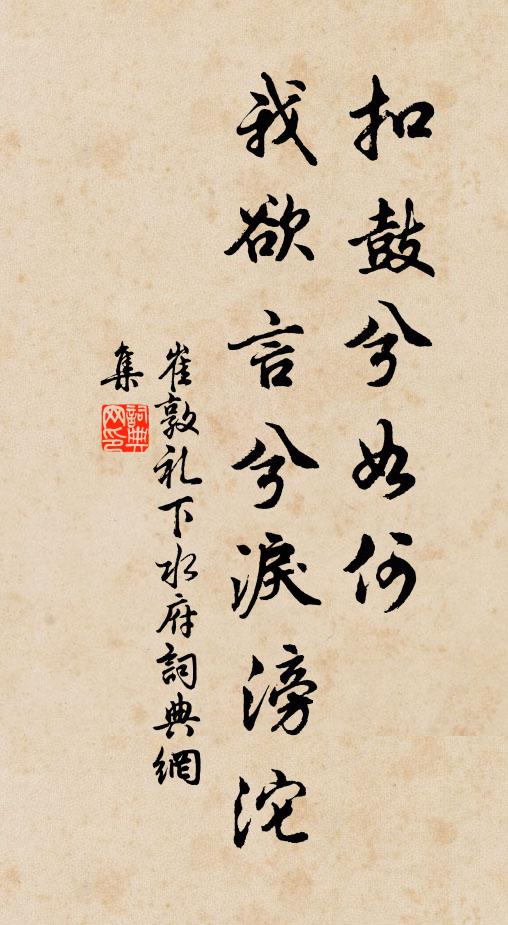 扣鼓兮如何
我欲言兮淚滂沱
崔敦礼下水府詞典網
集
詞典
网印